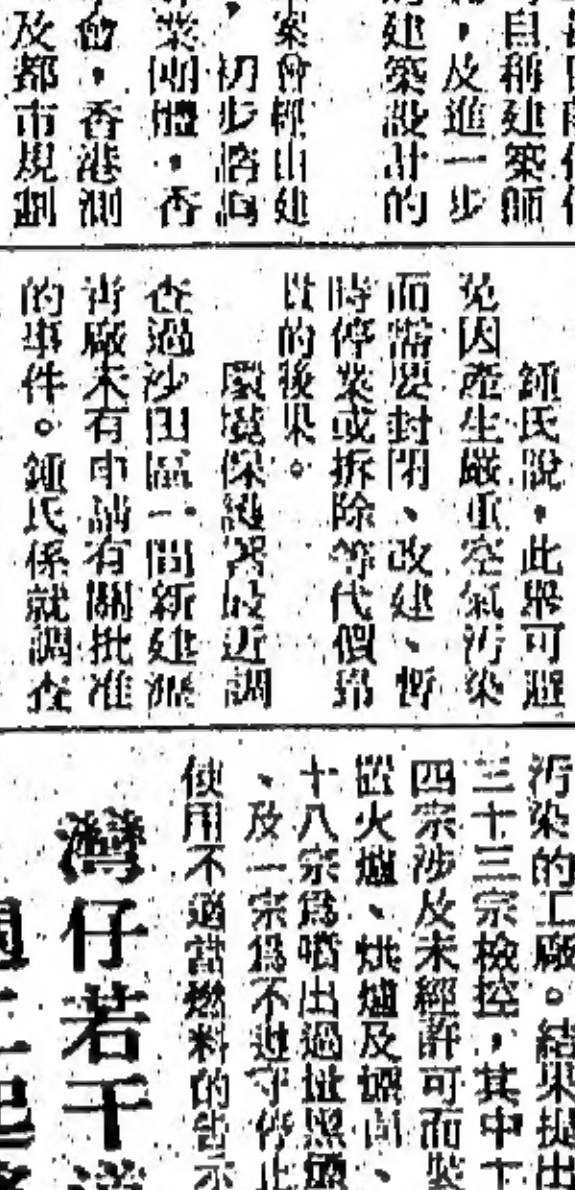 自稱建築師
，及進一步
建築設計的
案曾經由建
，初步諮詢
業團體，香
會，香港測
及都市規劃
鍾氏說，此舉可避
免因產生嚴重空氣污染
而需要封閉、改建、暫
時停業或拆除等代價昂
貴的後果。
環境保護署最近調
查過沙田區一間新建瀝
青廠未有申請有關批准
的事件。鍾氏係就調查
污染的工廠。結果提出
三十三宗檢控，其中十
四宗涉及未經許可而裝
置火爐、烘爐及煙囪、
十八宗爲噴出過量黑煙
、及一宗爲不遵守停止
使用不適當燃料的告示
灣仔若干